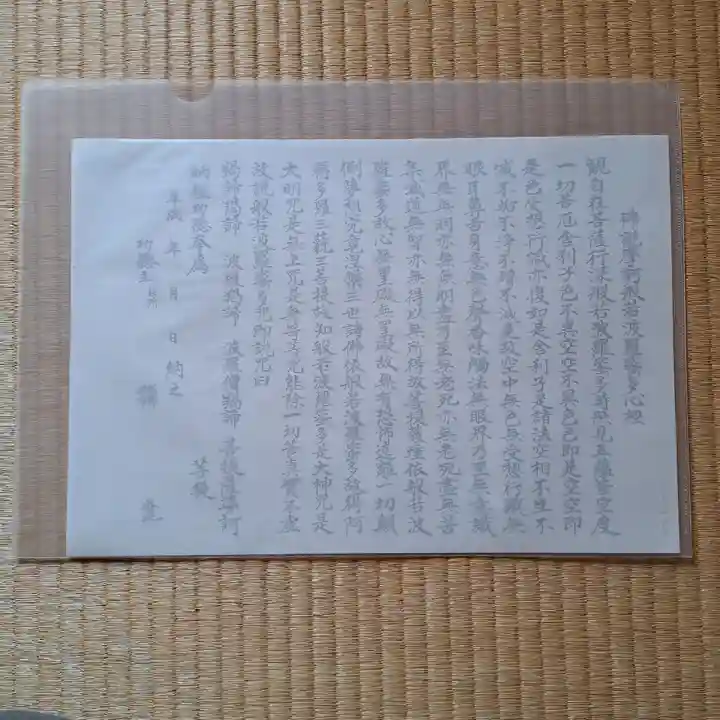 佛説摩訶般若波羅蜜多心経
観自在菩薩行深般若波羅蜜多時照見五蘊皆空度
一切苦厄舎利子色不異空空不異色色即是空空即
是色受想行識亦復如是舎利子是諸法空相不生不
滅不垢不浄不増不減是故空中無色無受想行識無
眼耳鼻舌身意無色聲香味觸法無眼界乃至無意識
界無無明亦無無明盡乃至無老死亦無老死盡無苦
集滅道無智亦無得以無所得故菩提薩埵依般若波
羅蜜多故心無罣礙無罣礙故無有恐怖遠離一切顛
倒夢想究竟涅槃三世諸佛依般若波羅蜜多故得阿
耨多羅三藐三菩提故知般若波羅蜜多是大神咒是
大明咒是無上咒是無等等咒能除一切苦真實不虚
故説般若波羅蜜多咒即説咒曰
羯諦羯諦 波羅羯諦 波羅僧羯諦 菩提薩婆訶
納経功徳奉為 菩提
平成 年 月 日 納之